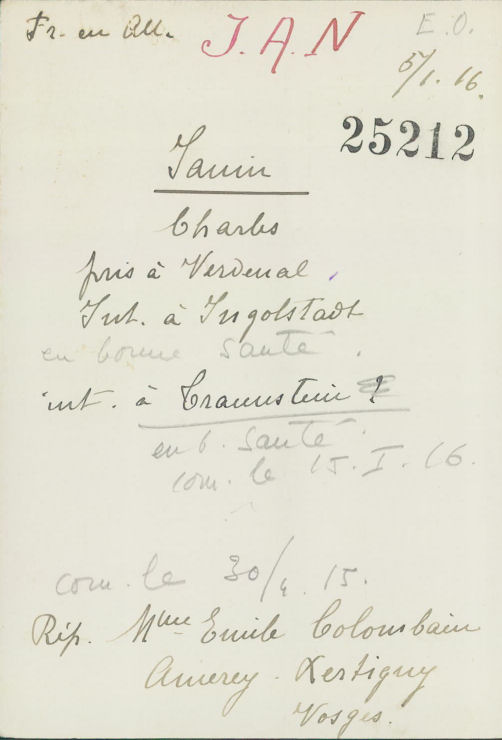 Fr. en All. J.A.N E.O.
5/1. 16.
25212
Janin
Charles
pris à Verdenal,
Int. à Ingolstadt
en bonne santé.
int. à Traunstein !
en b. santé.
com. le 15.I.16.
com. le 30/4.15.
Rép. Mme Emile Colombain
Amerey - Xertigny
Vosges.